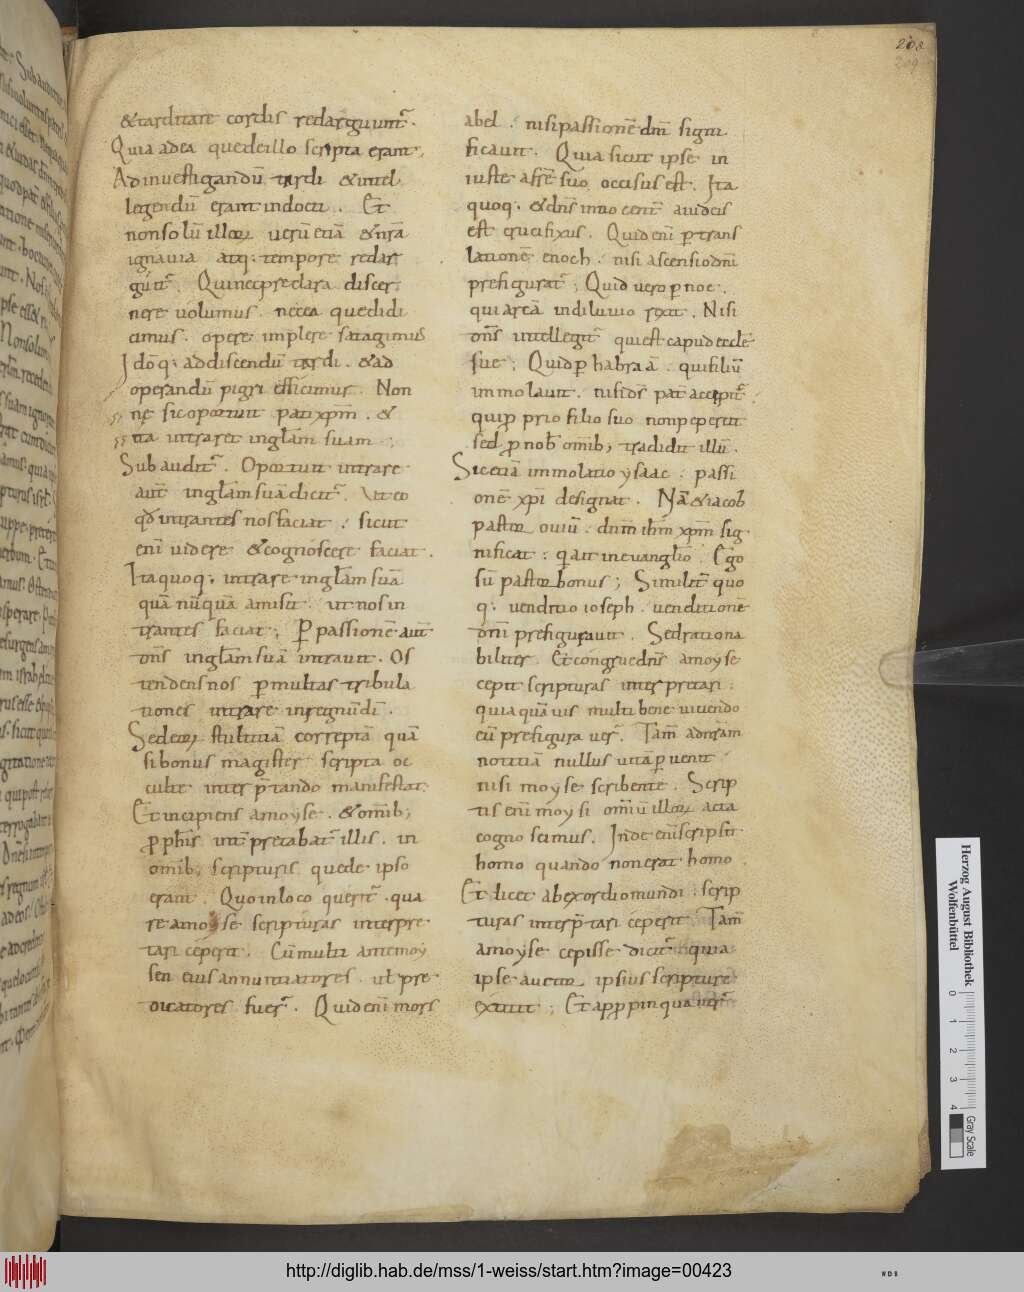 208
209
& tarditate cordis redarguunt᷑.
Quia adea quedeillo scripta erant,
Adinuestigandū tardi & intel
legendū erant indocti. Et
nonsolū illoꝝ uerū etiā & nr̄a
ignauia atq; tempore redar
guit᷑. Quinecpreclara discer
nere uolumus. necea quedidi
cimus. opere implere satagimus
Idoq; addiscendū tardi. & ad
operandū pigri efficimur. Non
ne sicoportuit pati xp̄m. &
ita intraret inglam̄ suam.
Subaudit᷑. Oportuit intrare
aut̄ inglam̄ suā dicit᷑. Ut eo
qd̄ intrantes nosfaciat. sicut
eni uidere & cognoscere faciat.
Itaquoq; intrare inglam̄ suā
quā nūquā amisit. ut nosin
trantes faciat; Ꝑ passionē aut̄
dn̄s inglam̄ suā intrauit. Os
tendens nos ꝑ multas tribula
tiones intrare inregnū dī.
Sedeoꝝ stultitiā correptā quā
si bonus magister scripta oc
culte interp̄tando manifestat.
Et incipiens amoyse. & omīb;
ꝓphis int̄pretabat᷑ illis. in
omīb; scripturis quede ipso
erant. Quo inloco querit᷑. qua
re amoyse scripturas interpre
tari ceperit. Cū multi antemoy
sen eius annuntiatores. ut pre
dicatores fuer᷑. Quid enī mors
abel. nisipassionē dn̄i signi
ficauit. Quia sicut ipse in
iuste afr̄e suo occisus est. Ita
quoq. & dn̄s innocent᷑ aiudeis
est crucifixus. Quid enī ꝑ trans
lationē enoch. nisi ascensiō dn̄i
prefigurat᷑; Quid uero ꝑ noe.
qui arcā indiluuio rexit. Nisi
dn̄s intellegit᷑ qui est capud eccle
sue; Quid ꝑ habraā. qui filiū
immolauit. nisi ds̄ pat̄ accipit᷑.
quiꝓ prio filio suo nonpepercit
sed ꝓ nob̄ omīb; tradidit illū.
Sicetiā immolatio ysaac. passi
onē xp̄i designat. Nā & iacob
pastor ouiū. dn̄m ih̄m xp̄m sig
nificat. q̄ ait in euanglio. Ego
sū pastor bonus; Similit᷑ quo
q; uenditio ioseph. uenditionē
dn̄i prefigurauit. Sedrationa
biliter. Et congrue dn̄s amoyse
cepit scripturas interpretari.
quia quāuis multi bene uiuendo
eū prefigurauer᷑. Tam̄ adnr̄am
notitiā nullus uitā ꝑuenit
nisi moyse scribente. Scrip
tis enī moysi omīū illoꝝ acta
cognoscimus. Inde enī scripsit
homo quando nonerat homo.
Et licet abexordiomundi. scrip
turas interp̄tari ceperit. Tam̄
amoyse cepisse dicit᷑ quia
ipse auctor ipsius scripture
extitit; Et appropinquauer᷑
Herzog August Bibliothek
Wolfenbüttel
0 1 2 3 4
Gray Scale
http://diglib.hab.de/mss/1-weiss/start.htm?image=00423